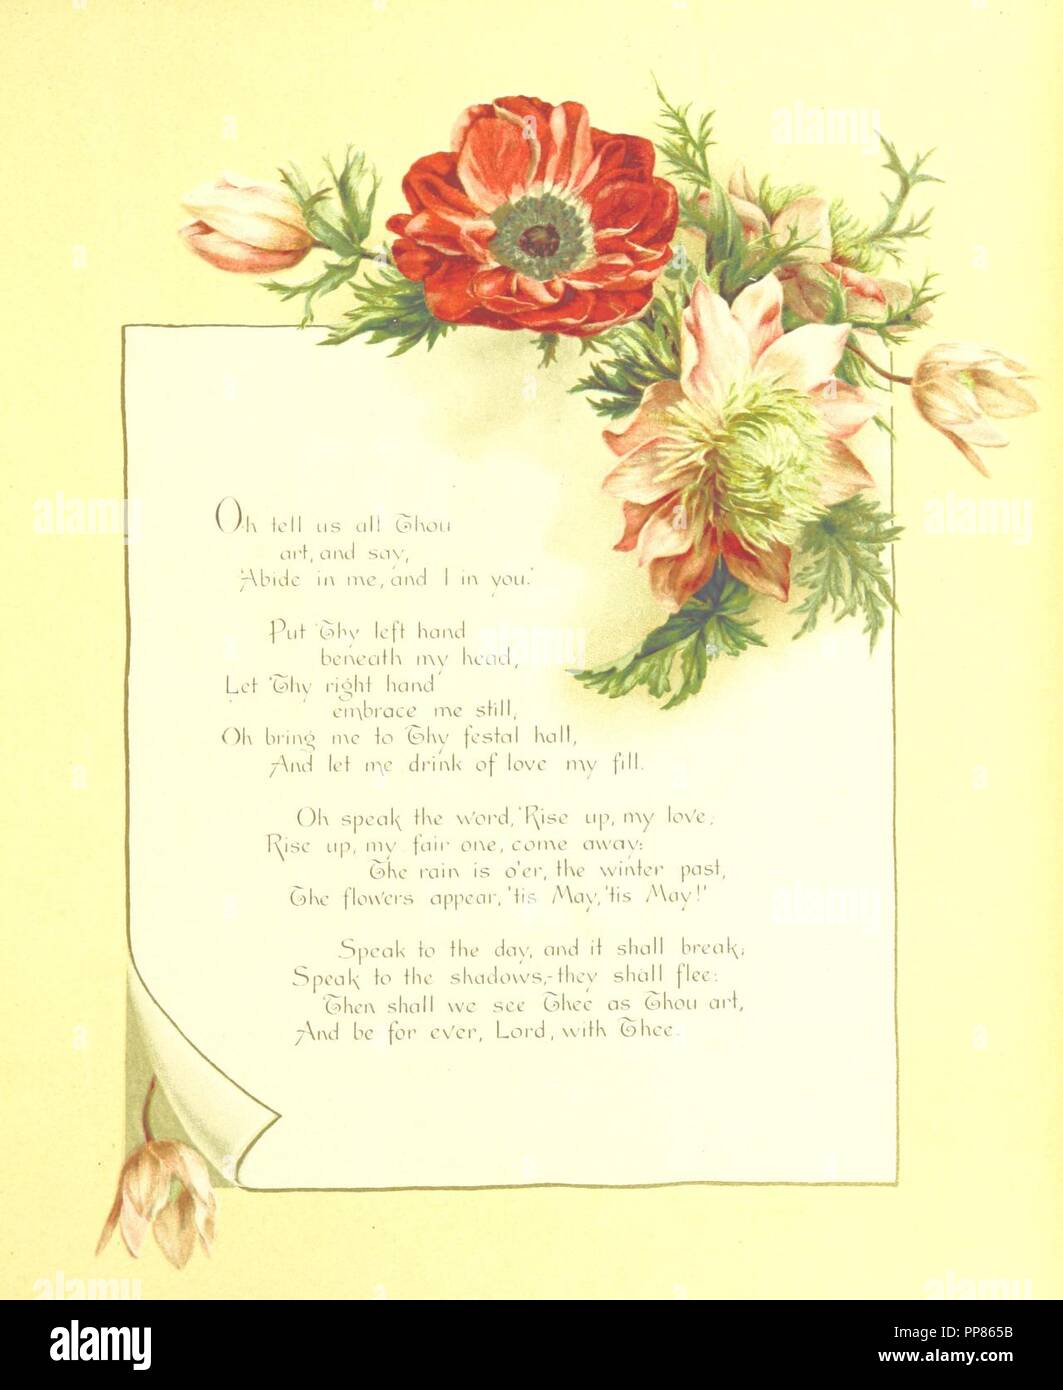 Oh tell us all Thou
art, and say,
'Abide in me, and I in you.'
Put Thy left hand
beneath my head,
Let Thy right hand
embrace me still,
Oh bring me to Thy festal hall,
And let me drink of love my fill.
Oh speak the word, 'Rise up, my love;
Rise up, my fair one, come away:
The rain is o'er, the winter past,
The flowers appear, 'tis May, 'tis May!'
Speak to the day, and it shall break;
Speak to the shadows,-they shall flee:
Then shall we see Thee as Thou art,
And be for ever, Lord, with Thee.
alamy
Image ID: PP865B
www.alamy.com